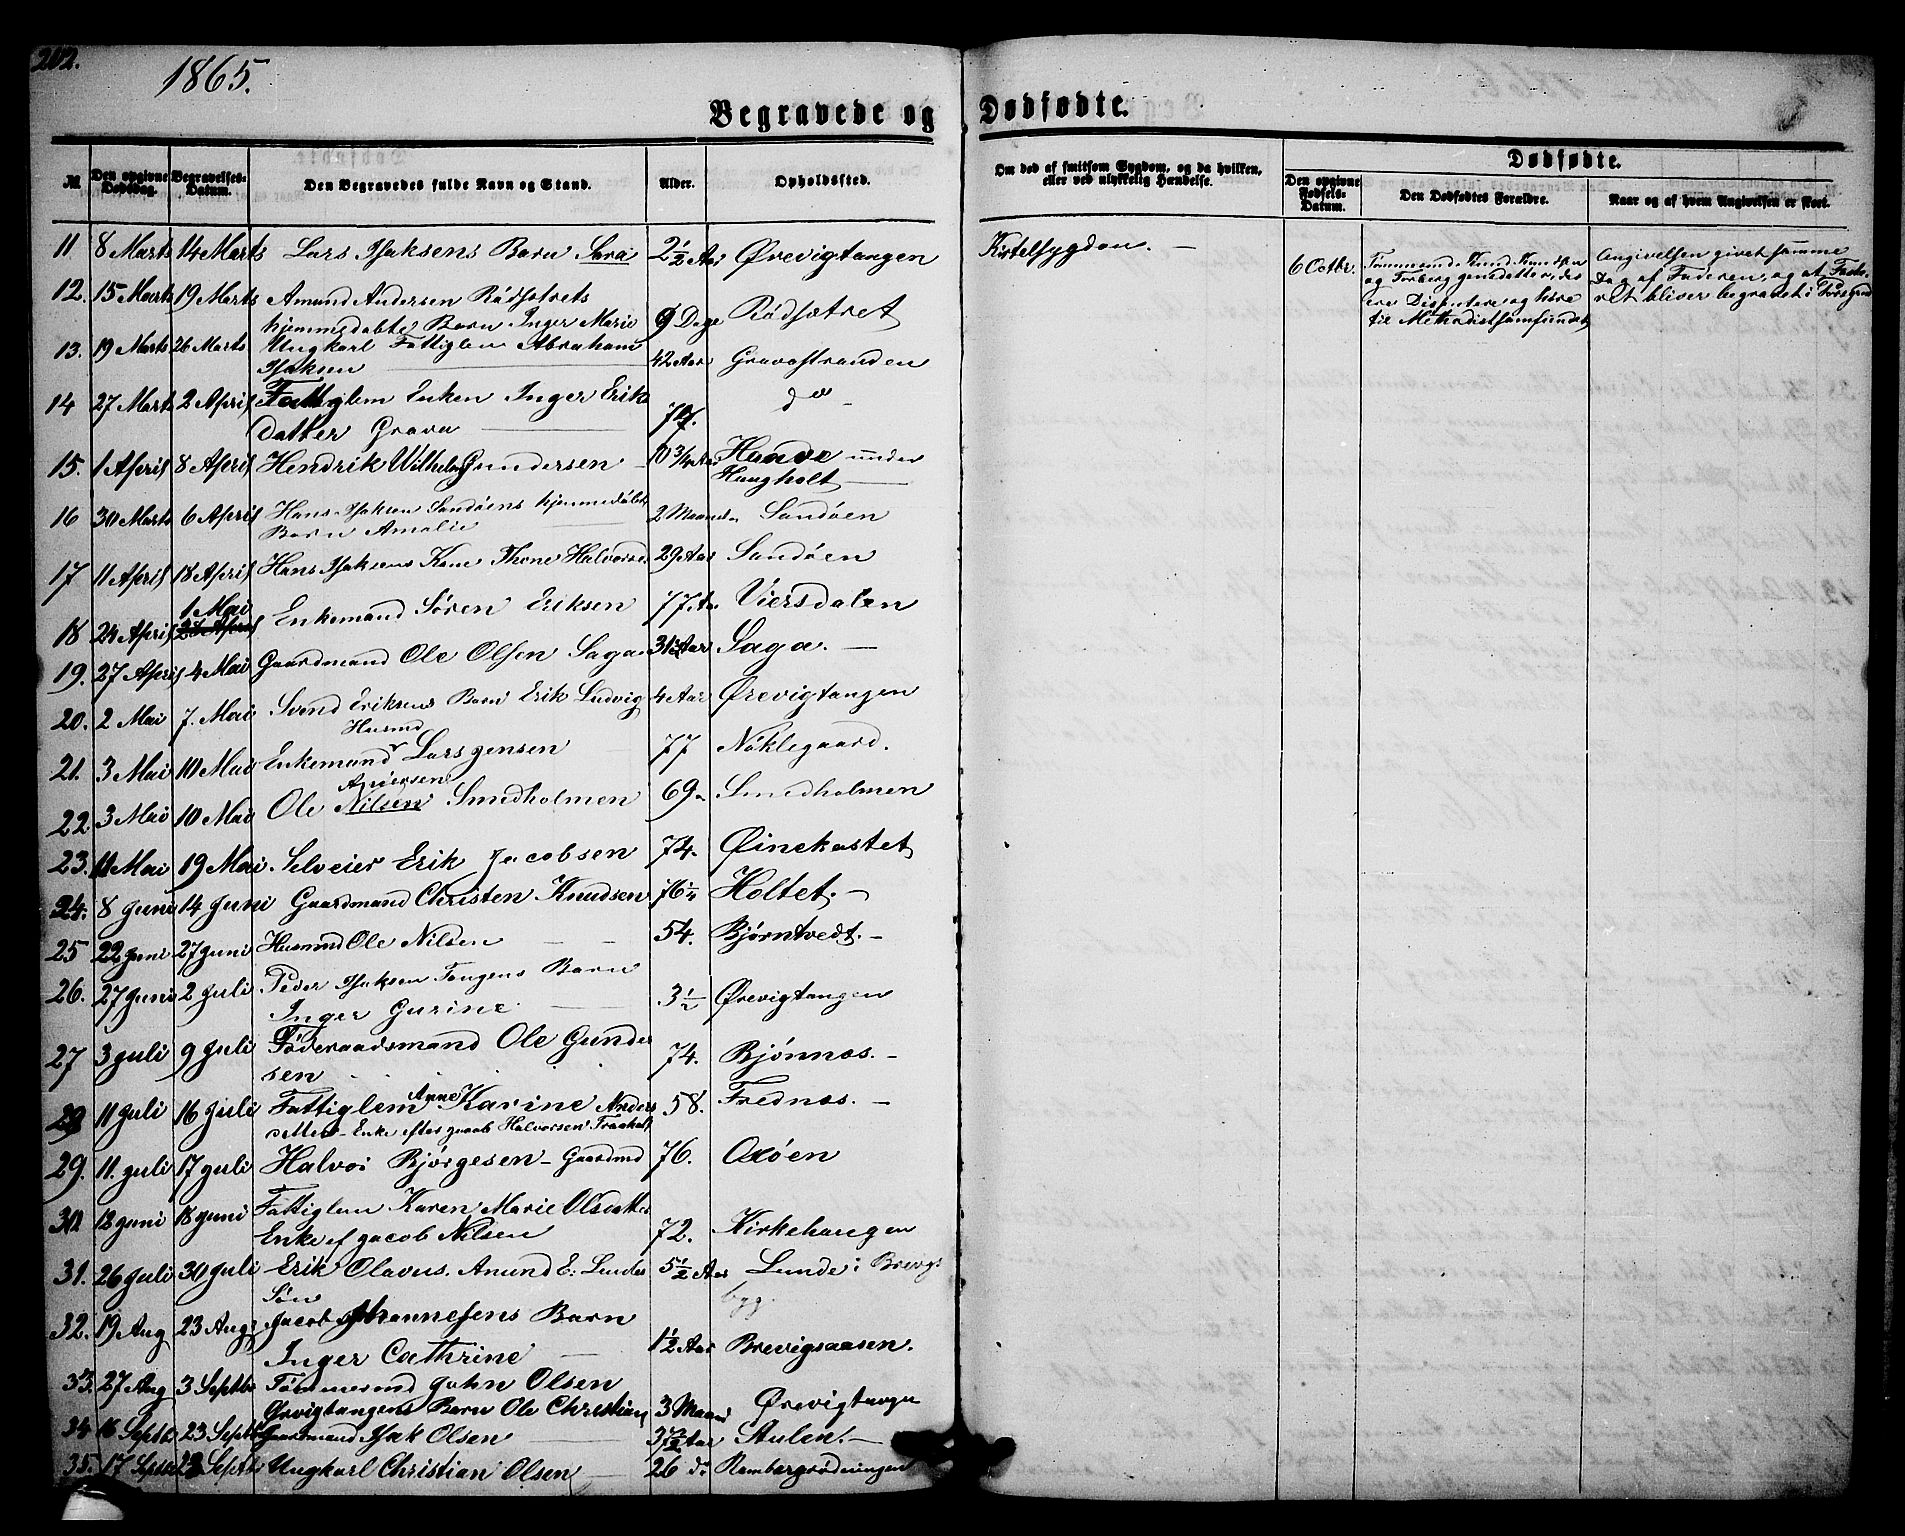 202.
1865.
Begravede og Dødfødte.
№ Den opgivne Dødsdag. Begravelses-Datum. Den Begravedes fulde Navn og Stand. Alder. Opholdssted.
Om død af smitsom Sygdom, og da hvilken, eller ved ulykkelig Hændelse.
Dødfødte.
Den opgivne Fødsels-Datum. Den Dødfødtes Forældre. Naar og af hvem Angivelsen er skeet.
11 8 Marts 14 Marts Lars Isaksens Barn Sara 2½ Aar Ørevigtangen Kirtelsygdom. —
12. 15 Marts 19 Marts Amund Andersen Rødsætrets
hjemmedøbte Barn Inger Marie 9 Dage Rødsætret
13. 19 Marts 26 Marts Ungkarl Fattiglem Abraham
Isaksen 42 Aar Gravastranden
14 27 Marts 2 April Fattiglem Enken Inger Eriks
datter Grava 77. do
15. 1 April 8 April Hendrik Wilhelm Gundersen 10 3/4 Aar Hande under
Haugholt
16 30 Marts 6 April Hans Isaksen Sandøens hjemmedøbte
Barn Amalie 2 Maaneder Sandøen
17 11 April 18 April Hans Isaksens Kone Thone Halvorsd. 29 Aar Sandøen
18 24 April 1 Mai Enkemand Søren Eriksen 77 Aar Viersdalen
19. 27 April 4 Mai Gaardmand Ole Olsen Saga 31½ Aar Saga. —
20. 2 Mai 7. Mai Svend Eriksens Barn Erik Ludvig 4 Aar Ørevigtangen
Husmd
21. 3 Mai 10 Mai Enkemand Lars Jensen 77 Nøklegaard.
Andersen
22 3 Mai 10 Mai Ole Nilsen Smedholmen 69 Smedholmen
23. 11 Mai 19 Mai. Selveier Erik Jacobsen 74. Øinekastet
24. 8 Juni 14 Juni Gaardmand Christen Knudsen 76¼ Holtet. —
25 22 Juni 27 Juni Husmd Ole Nilsen 54. Bjørntvedt. —
26. 27 Juni 2 Juli Peder Isaksen Tangens Barn
Inger Gurine 3½ Ørevigtangen
27 3 Juli 9 Juli Føderaadsmand Ole Gunder
sen 74. Bjønnæs. —
Anne
29 11 Juli 16 Juli Fattiglem Karine Anders
datter — Enke efter Jacob Halvorsen 58. Frednæs. —
29. 11. Juli 17 Juli Halvor Bjørgesen — Gaardmd 76. Oxøen
30. 12 Juni 18 Juni Fattiglem Karen Marie Olsdatter
Enke ef Jacob Nilsen 72. Kirkehaugen
31. 26 Juli 30 Juli Erik Olavus. Amund E. Lundes
Søn 5½ Aar Lunde i Brevigs
byg.
32. 19 Aug 23 Aug Jacob Johannesens Barn
Inger Cathrine 1½ Aar Brevigsaasen.
33. 27 Aug 3 Septb Tømmermd John Olsen
Ørvigtangens Barn Ole Christian 3 Maaned Ørevigtangen
34 16 Septb 23 Septb Gaardmand Isak Olsen Aar Aulen. —
35. 17 Septb 23 Septb Ungkarl Christian Olsen 26 do Rambergrødningen
6 Octbr.
Tømmermd. Knud Knudsen
og Torborg Jensdatter, des
ere Dissentere og høre
til Methodistsamfundet
Angivelsen givet samme
Dag af Faderen, og at Foste-
ret bliver begravet i Porsgrund